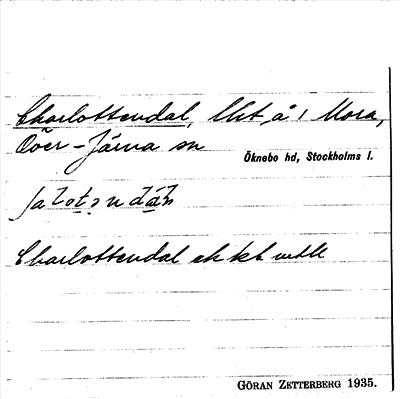 Charlottendal, lht, å 1 Mora,
Över-Järna sn
Öknebo hd, Stockholms l.
Charlottendal ek kbl
GÖRAN ZETTERBERG 1935.